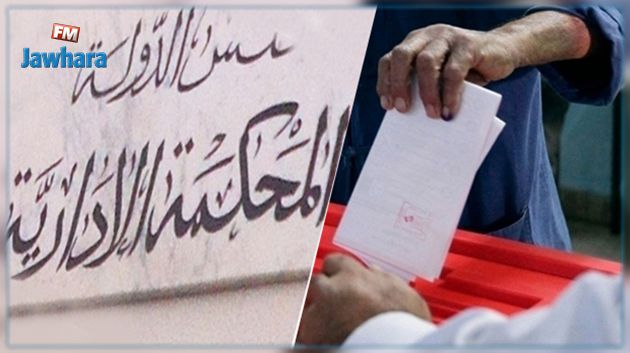 FM
Jawhara
الدّولة
المحكمة الإداريّة